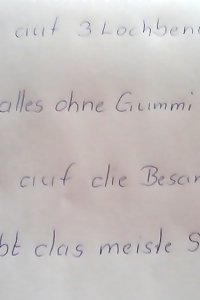 auf 3 Lochben
alles ohne Gummi
auf die Besam
bt das meiste S